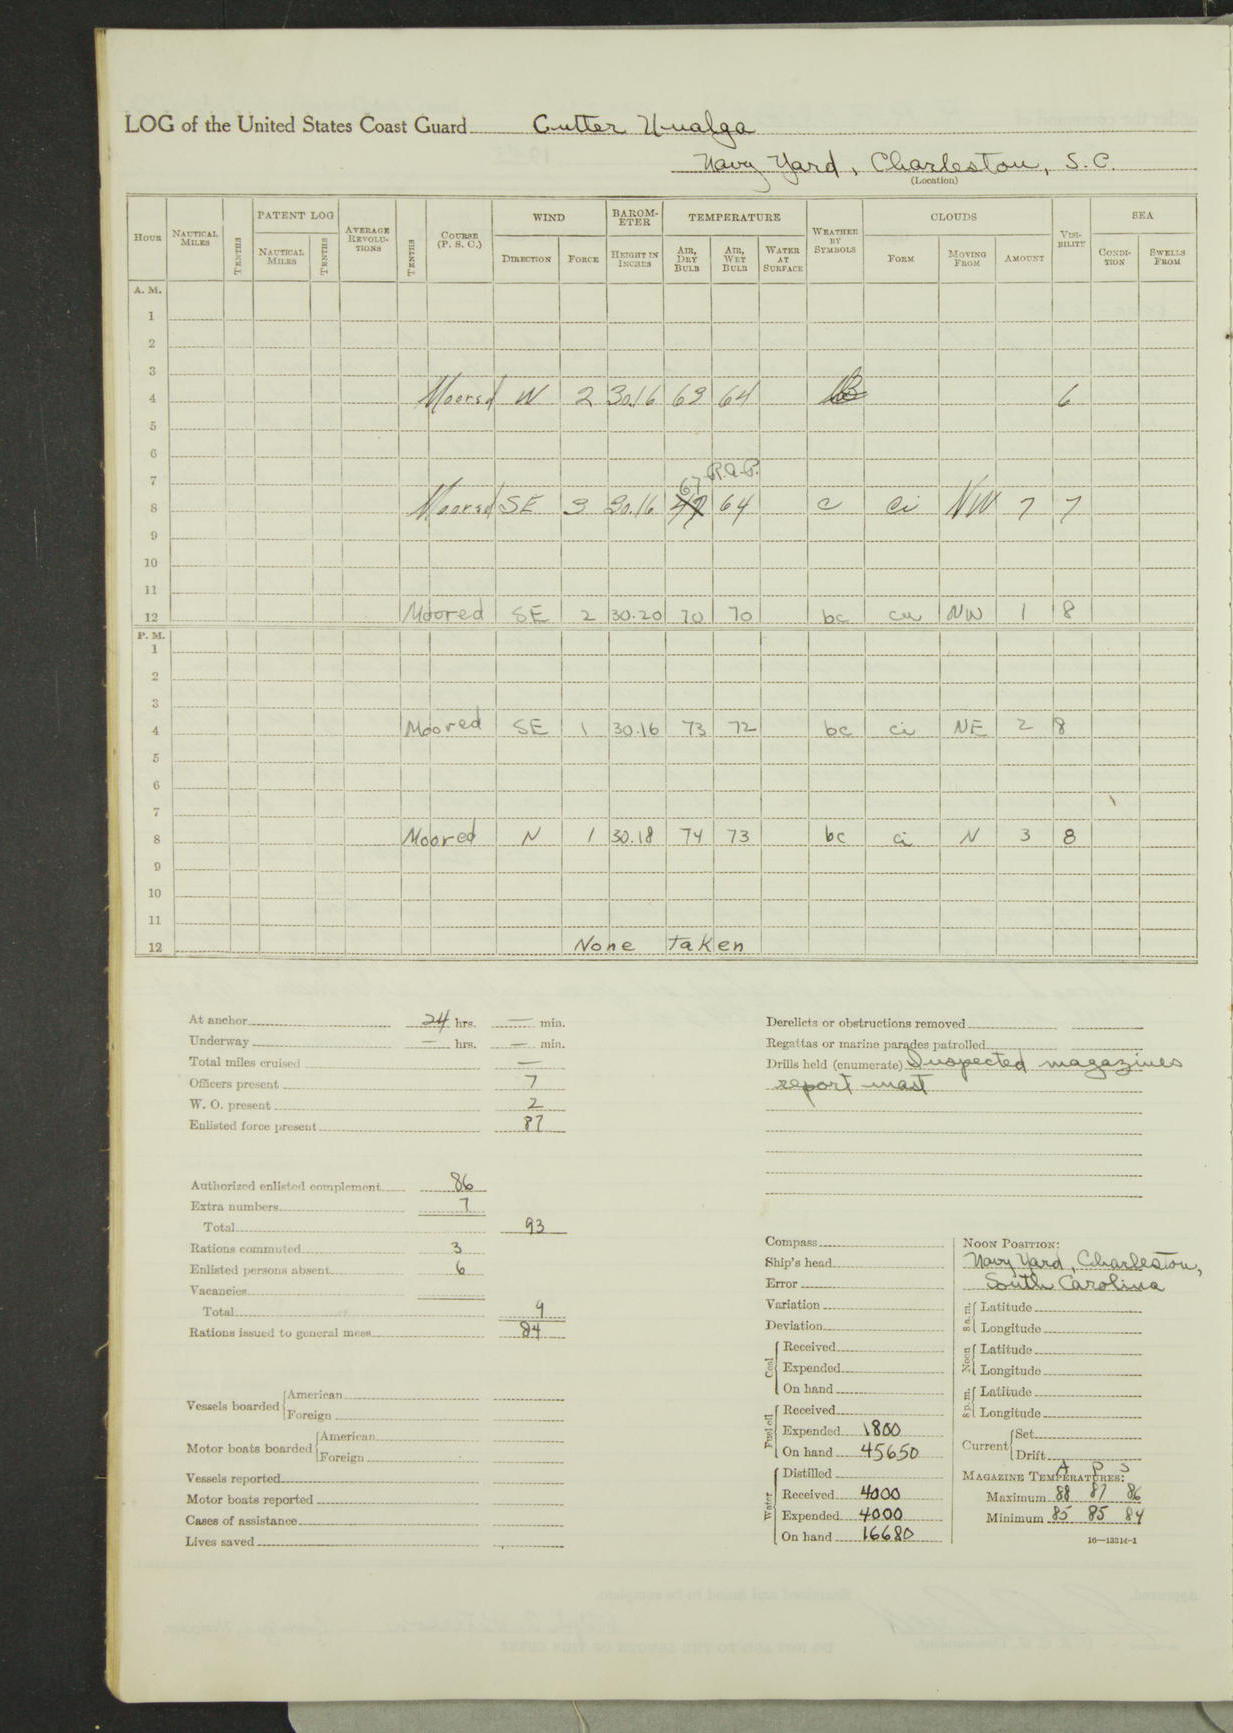 LOG of the United States Coast Guard Cutter Unalga
Navy Yard, Charleston, S.C.
(Location)
HOUR NAUTICAL MILES TENTHS PATENT LOG AVERAGE REVOLU-TIONS TENTHS COURSE (P. S. C.) WIND BAROM-ETER TEMPERATURE WEATHER BY SYMBOLS CLOUDS VISI-BILITY SEA
NAUTICAL MILES TENTHS DIRECTION FORCE HEIGHT IN INCHES AIR, DRY BULB AIR, WET BULB WATER AT SURFACE FORM MOVING FROM AMOUNT CONDI-TION SWELLS FROM
A. M.
1
2
3
4 Moored N 2 30.16 69 64 6
5
6
7 67 R.A.P.
8 Moored SE 3 30.16 64 c ci NW 7 7
9
10
11
12 Moored SE 2 30.20 70 70 bc cu NW 1 8
P. M.
1
2
3
4 Moored SE 1 30.16 73 72 bc ci NE 2 8
5
6
7
8 Moored N 1 30.18 74 73 bc ci N 3 8
9
10
11
12 None taken
At anchor 24 hrs. — min.
Underway — hrs. — min.
Total miles cruised —
Officers present 7
W. O. present 2
Enlisted force present 87
Authorized enlisted complement 86
Extra numbers 7
Total 93
Rations commuted 3
Enlisted persons absent 6
Vacancies
Total 9
Rations issued to general mess 84
Vessels boarded American
Foreign
Motor boats boarded American
Foreign
Vessels reported
Motor boats reported
Cases of assistance
Lives saved
Derelicts or obstructions removed
Regattas or marine parades patrolled
Drills held (enumerate) Inspected magazines
report mast
Compass
Ship's head
Error
Variation
Deviation
Coal Received
Expended
On hand
Fuel oil Received
Expended 1800
On hand 45650
Water Distilled
Received 4000
Expended 4000
On hand 16680
NOON POSITION:
Navy Yard, Charleston,
South Carolina
8 a.m. Latitude
Longitude
Noon Latitude
Longitude
8 p.m. Latitude
Longitude
Current Set
Drift
A P S
MAGAZINE TEMPERATURES:
Maximum 88 87 86
Minimum 85 85 84
16—13314-1